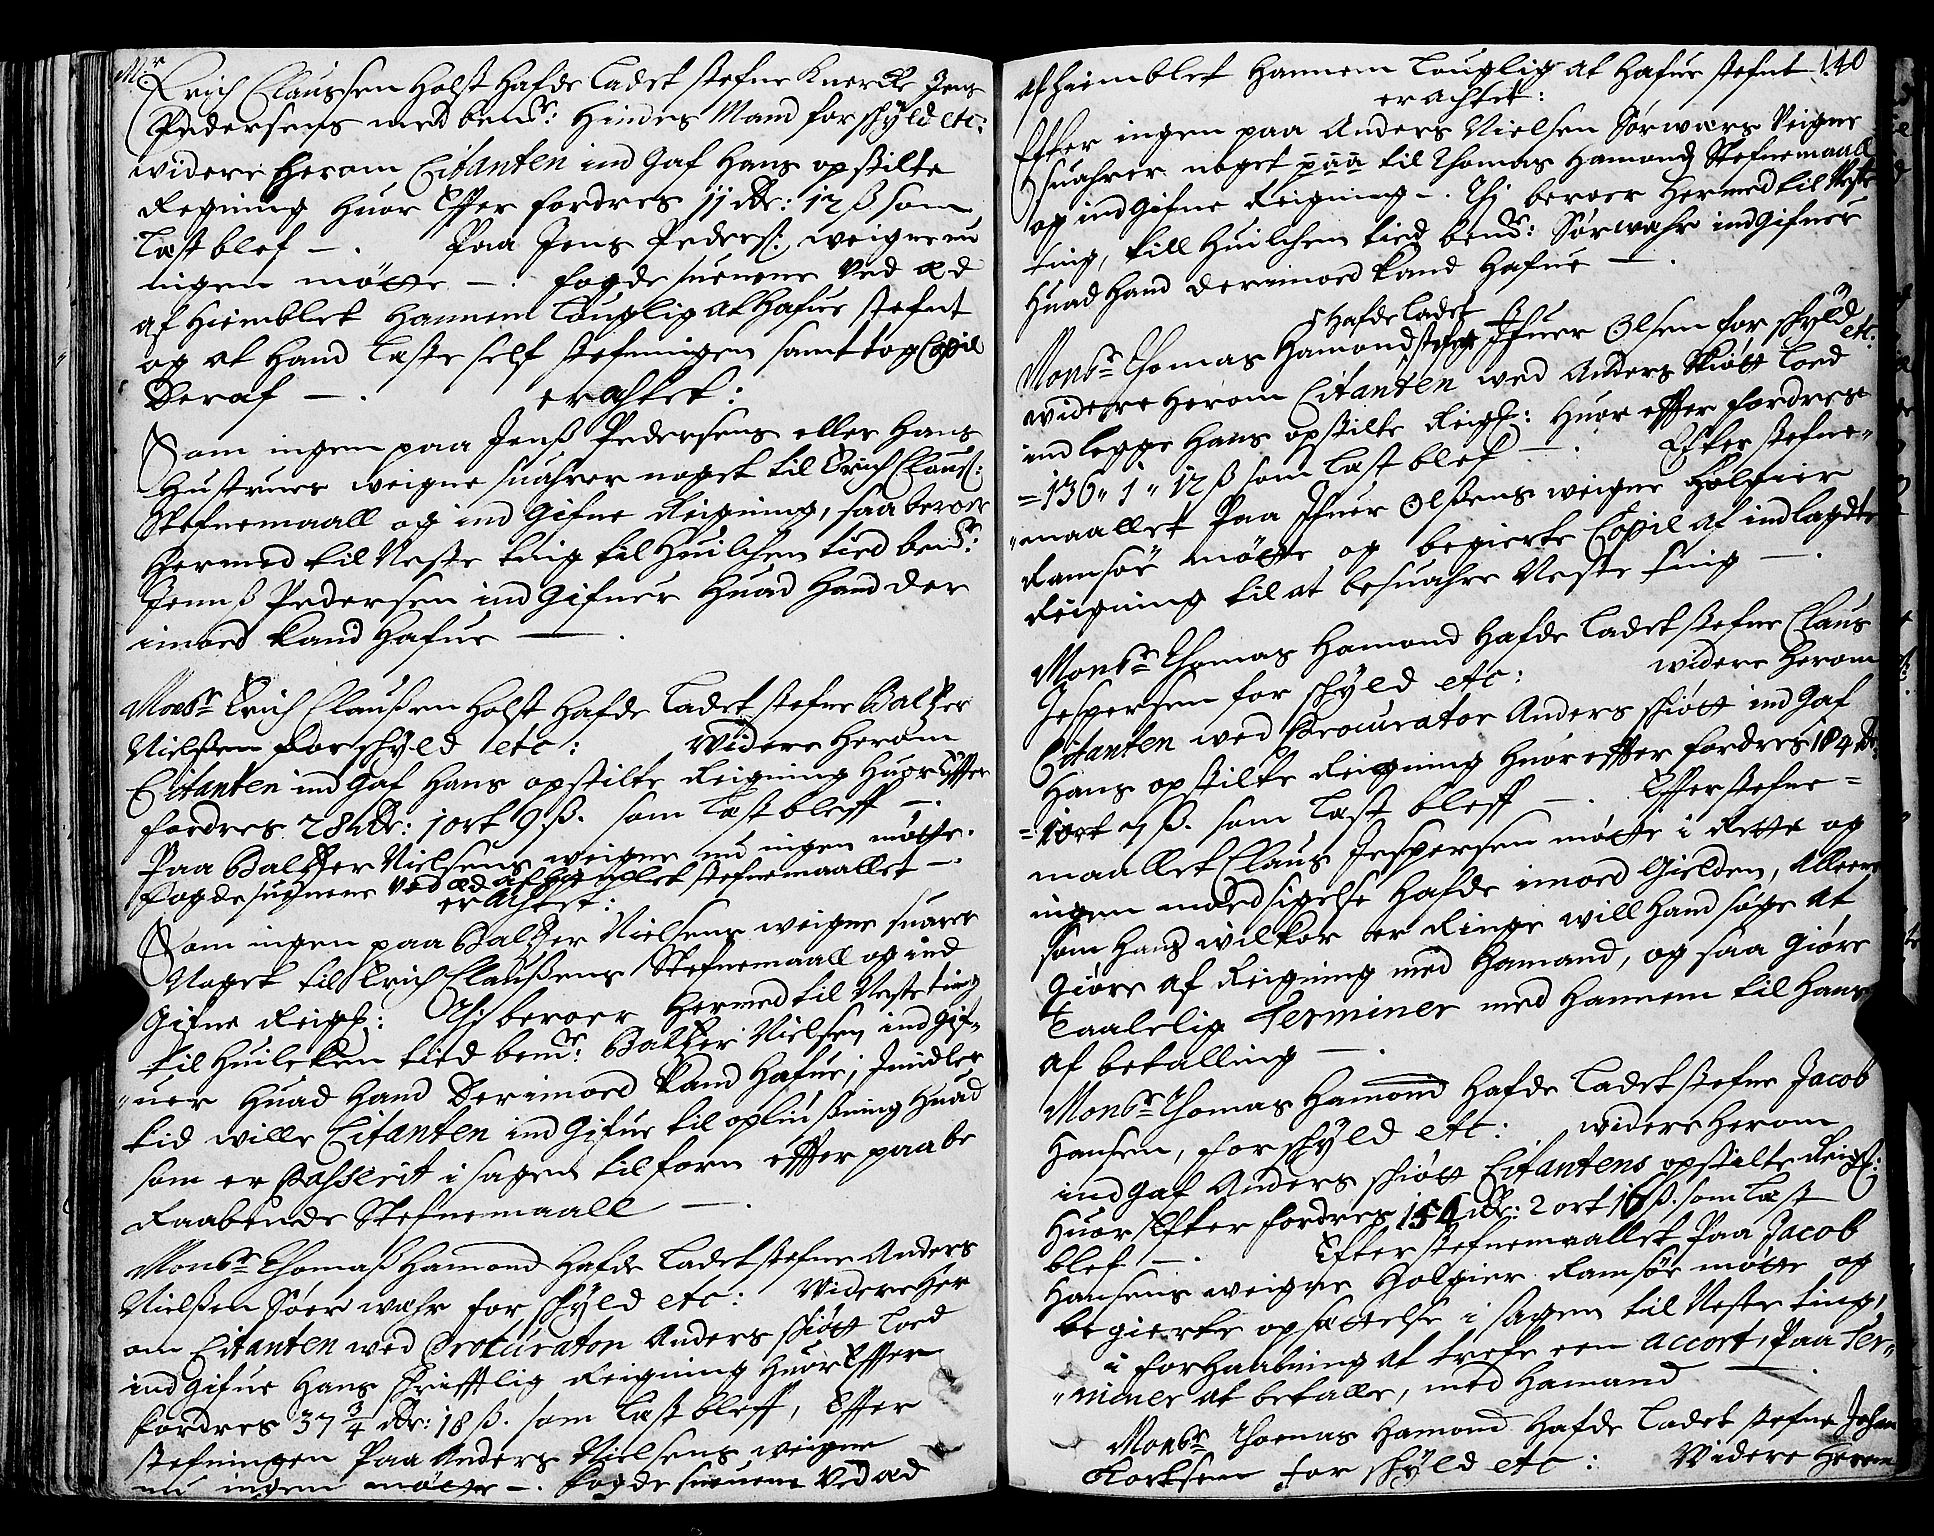 Mr Erich Claussen Holst Hafde Ladet stefne Knercke Jens
Pedersens med bemte: Hindes Mand for schyld etc:
widere herom Citanten ind Gaf Hans opstilte
Regning Huor Effter fordres 11 rdr: 12 ß som
Læst blef —. Paa Jens Peders: weigne nu
ingen møtte —. fogde suenene Ved æd
af Hiemblet Hannem Louglig at Hafue stefnt
og at Hand Læste self stefningen samt tog Copie
Deraf —. erachtet:
Som ingen paa Jenß Pedersens eller Hans
Hustrues weigne suahrer noget til Erich Clauß:
Stefnemaall og ind Gifne Reigning, saa beroer
Hermed til Neste ting til Huilchen tied bemte:
Jennß Pedersen ind Gifuer Huad Hand der
imoed kand Hafue —.
Monsr Erich Claußen Holst Hafde Ladet stefne Baltzer
Nielßen for schyld etc: Widere Herom
Citanten ind Gaf Hans opstilte Reigning Huor Effter
fordres 28 rdr: 1 ort 9 ß. som Læst bleff —.
Paa Baltzer Nielsens weigne nu ingen møtte.
Fogdesuenene Ved æd af Hiemblet stefnemaallet —.
erachtet:
Som ingen paa Baltzer Nielsens weigne suarer
Noget til Erich Claußens Stefnemaall og ind
Gifne Reigh: Thj beroer Hermed til Neste ting
til Huilcken tied bemte: Baltzer Nielsen ind Gif-
"uer Huad Hand Derimoed kand Hafue, Imidler
tid wille Citanten ind Gifue til opliusßning Huad
som er Passerit i sagen tilforn effter paabe
Raabende Stefnemaall —.
Monsr Thomaß Hamond Hafde Ladet stefne Anders
Nielßen Sører wahr for schyld etc: Widere Her
om Citanten wed Procurator Anders Schiøtt loed
ind Gifue Hans schrifftlig Reigning Huor Effter
fordres 37 3/4 rdr: 18 ß. som Læst bleff, Effter
stefningen Paa Anders Nielsens weigne
nu ingen møtte —. fogde suenene Ved æd
af Hiemblet Hannem Louglig at Hafue stefnt 140
erachtet:
Efter ingen paa Anders Nielsen Sørwars Veigne
suahrer noget paa til Thomas Hamonds Stefnemaall
og ind Gifne Reigning —. Thj beroer Hermed til Neste
ting, till Huilchen tied bemte: Sørwahr indGifuer
Huad Hand Derimoed kand Hafue —.
Hafde Ladet
Monsr Thomas Hamond stefne Ifuer Olsen for schyld etc:
widere Herom Citanten wed Anders Skiøtt Loed
ind Legge Hans opstilte Reigh: Huor effter fordres
=136" 1" 12 ß som Læst blef —. Efter stefne"
"maallet Paa Ifuer Olßens weigne Holgier
Ramsøe møtte og begierte Copie af indlagdte
Reigning til at besuahre Neste ting —.
Monsr Thomas Hamond Hafde Ladet stefne Claus
Jespersen for schyld etc: widere Herom
Citanten wed Procurator Anders Schiøtt ind Gaf
Hans opstilte Reigning Huor effter fordres 184 rdr:
=1 ort 7 ß. som Læst bleff —. Effter stefne=
maallet Claus Jespersen møtte i Rette og
ingen modsigelse Hafde imoed Gielden, Alleene
som Hans wilkor er Ringe will Hand søge at
Giøre af Reigning med Hamand, og saa Giøre
Taalelig Terminer med Hannem til Hans
af betalling —.
Monsr Thomas Hamond Hafde Ladet stefne Jacob
Hansen, for schyld etc: widere Herom
ind Gaf Anders Schiøtt Citantens opstilte Reigh:
Huor Efter fordres 154 rdr: 2 ort 16 ß. som Læst
blef —. Efter stefnemaallet Paa Jacob
Hansens weigne Holgier Ramsøe møtte og
begierte opsættelse i sagen til Neste ting,
i forhaabning at treffe een accort, Paa Ter-
"miner at betalle, med Hamand —.
Monsr Thomas Hamond Hafde Ladet stefne Johan
for schyld etc: Widere Herom